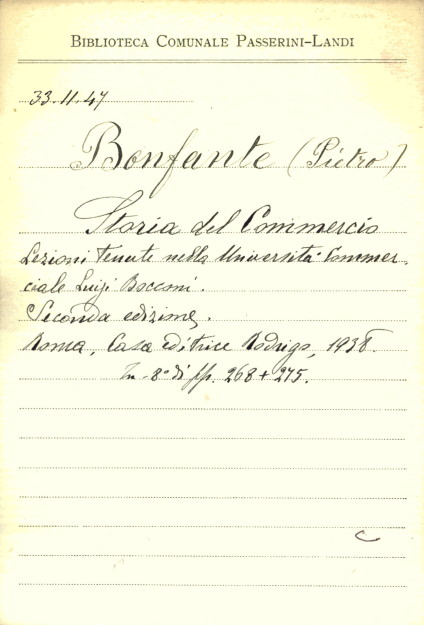 BIBLIOTECA COMUNALE PASSERINI-LANDI
33.11.47
Bonfante (Pietro)
Storia del Commercio
Lezioni tenute nella Università Commer-
ciale Luigi Bocconi.
Seconda edizione.
Roma, Casa editrice Rodrigo, 1938.
In-8° di pp. 268 + 275.
C